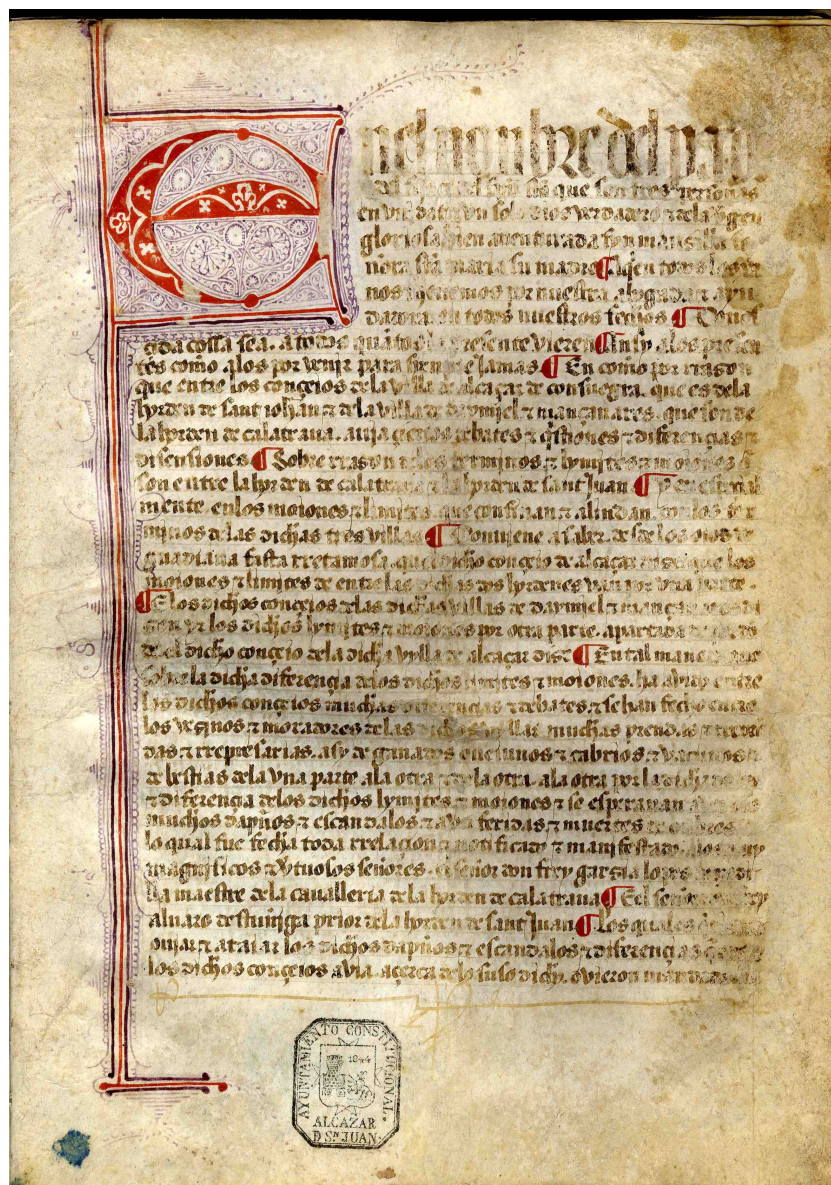 En el nonbre del pad
del fijo e del spu sto que son tres personas
en vna dat e vn solo dios verdadero e de la vgen
gloriosa bien auenturada syn mansilla
nra sta maria su madre
nos tenemos por nuestra abogada e ayu
dadora en todos nuestros fechos ¶ Conos
çida cossa sea a todos quantos la presente vieren ¶ Ansy a los presen
tes como a los por venir para sienpre jamas ¶ En como por rrason
que entre los conçejos de la villa de alcaçar de consuegra que es de la
horden de sant iohan e de la villa de daymiel e mançanares que son de
la horden de calatraua auia debates e qistiones e diferençias e
disensiones ¶ Sobre rrason de los terminos e lymites e moiones q
son entre la horden de calatraua e la horden de sant Juan ¶ E en espeçial
mente en los moiones e limites que confinan e alindan con los ter
minos de las dichas tres villas ¶ Conviene a saber desde los ojos de
guadiana fasta rretamosa quel dicho conçeio de alcaçar que los
moiones e limites de entre las dichas dos hordenes van por vna parte
¶ E los dichos conçeios de las dichas villas de daymiel e mançanares di
çen yr los dichos lymites e moiones por otra parte apartada
el dicho conçeio de la dicha vylla de alcaçar dise ¶ En tal manera que
sobre la dicha diferençia de los dichos limites e moiones ha avido entre
los dichos conçeios muchas diferençias e debates e se han fecho entre
los veçinos e moradores de las dichas villas muchas prendas e
das e rrepresarias asy de ganados ouejunos e cabrios e vacunos
de bestias de la vna parte a la otra e de la otra a la otra por la dicha
e diferençia de los dichos lymites e moiones e se esperauan
muchos dapños e escandalos e avn feridas e muertes de onbres
lo qual fue fecha toda rrelaçion e notificado e manifestado a los muy
magnificos e vtuosos señores el señor don frey garçia lopes de padi
lla maestre de la cavalleria de la horden de calatraua ¶ E el señor frey
aluaro destuñiga prior de la horden de sant Juan ¶ Los quales
euitar e ataiar los dichos dapños e escandalos e diferençias que entre
los dichos conçeios avia açerca de lo suso dicho ovieron mandado
AYUNTAMIENTO CONSTITUCIONAL
1844
ALCAZAR
D Sn. JUAN